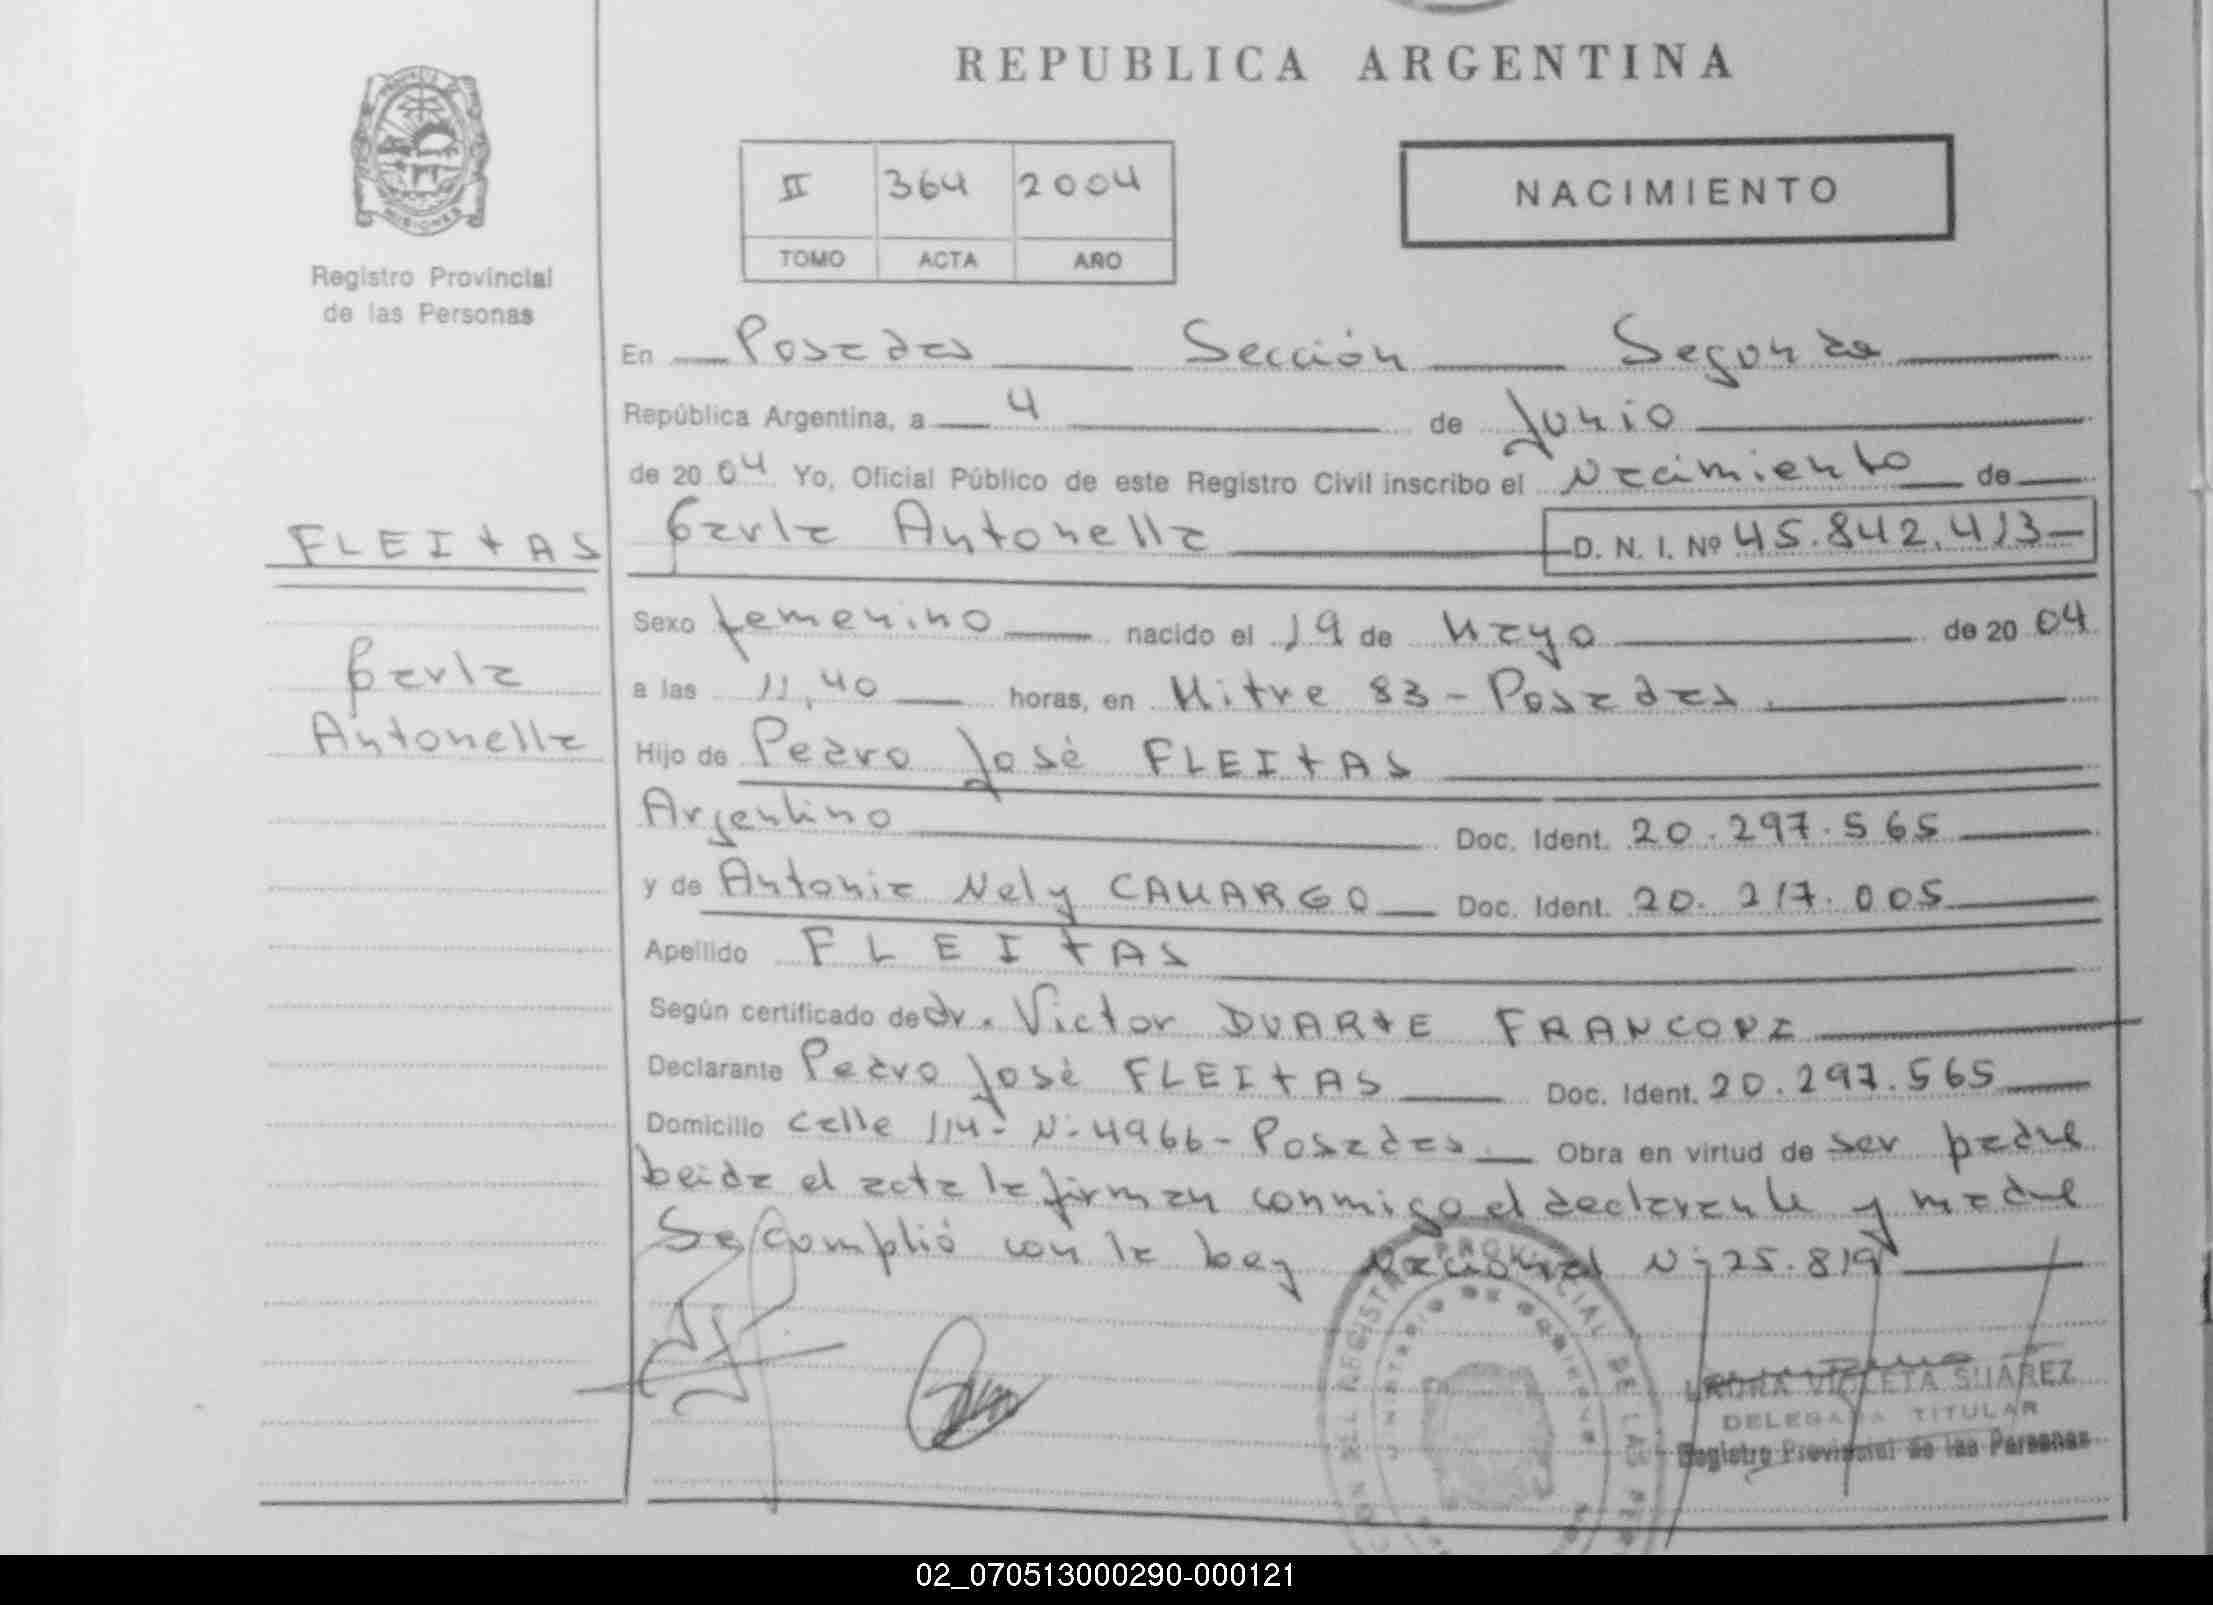 REPUBLICA ARGENTINA
MISIONES
Registro Provincial
de las Personas
II 364 2004
TOMO ACTA AÑO
NACIMIENTO
En Posadas Sección Segunda
República Argentina, a 4 de Junio
de 20 04 Yo, Oficial Público de este Registro Civil inscribo el Nacimiento de
FLEITAS
Carla Antonella D. N. I. Nº 45.842.413
Sexo femenino nacido el 19 de Mayo de 20 04
Carla
Antonella
a las 11,40 horas, en Mitre 83 - Posadas.
Hijo de Pedro José FLEITAS
Argentino Doc. Ident. 20.297.565
y de Antonia Nely CAMARGO Doc. Ident. 20.217.005
Apellido FLEITAS
Según certificado de dr. Victor DUARTE FRANCONI
Declarante Pedro José FLEITAS Doc. Ident. 20.297.565
Domicilio Calle 114 - Nº 4966 - Posadas. Obra en virtud de ser padre
Leida el acta la firman conmigo el declarante y madre
Se Cumplió con la Ley Nacional Nº 25.819
VIOLETA SUAREZ
DELEGADA TITULAR
Registro Provincial de las Personas
REGISTRO PROVINCIAL DE LAS
MINISTERIO DE GOBIERNO
02_070513000290-000121